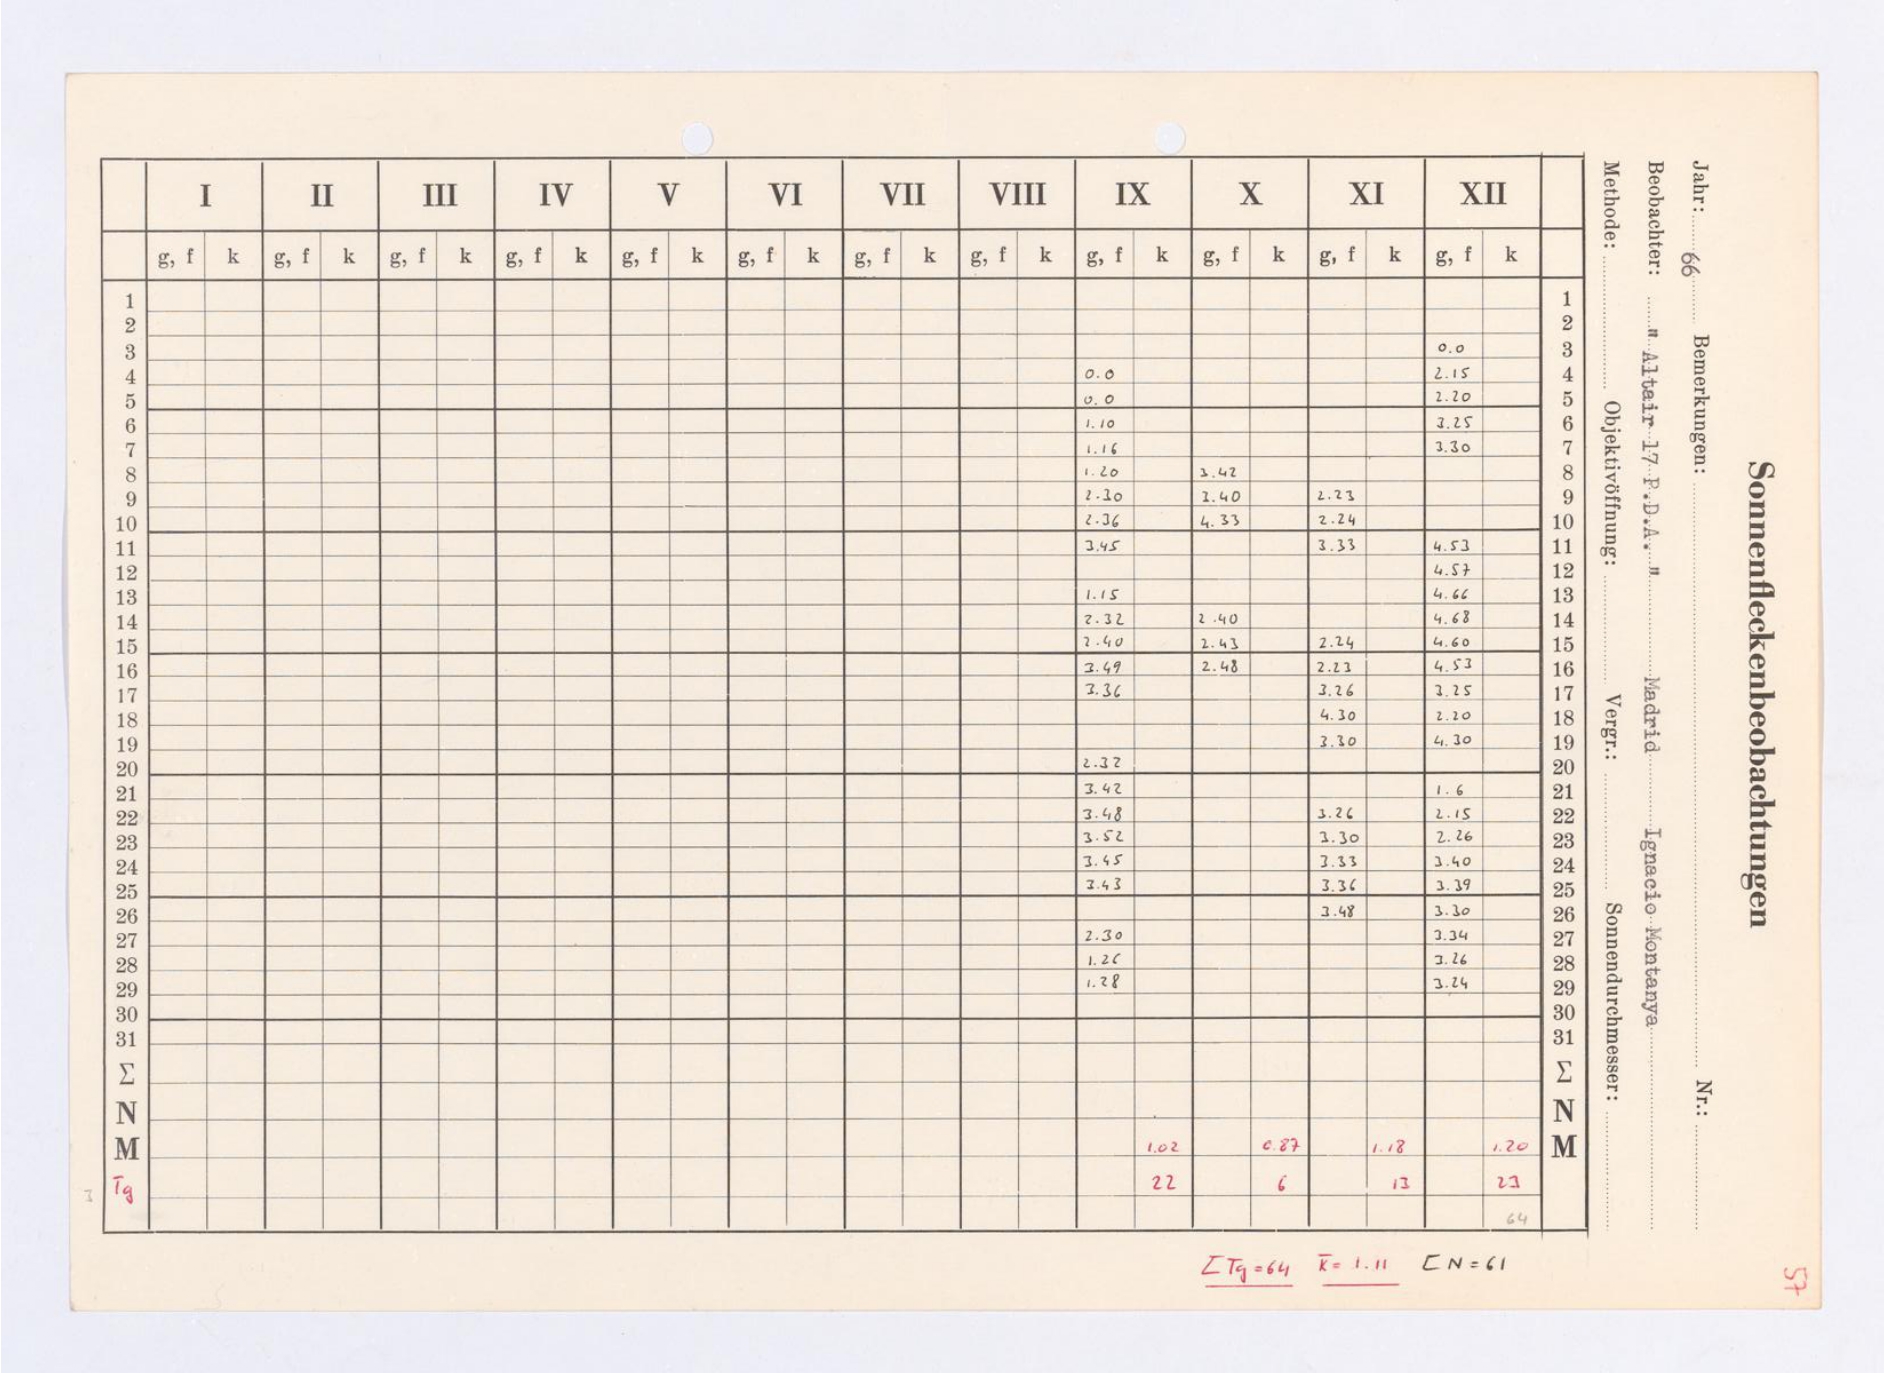 Sonnenfleckenbeobachtungen
Jahr: 66 Bemerkungen: Nr.:
Beobachter: "Altair 17 P.D.A." Madrid Ignacio Montanya
Methode: Objektivöffnung: Vergr.: Sonnendurchmesser:
I II III IV V VI VII VIII IX X XI XII
g, f k g, f k g, f k g, f k g, f k g, f k g, f k g, f k g, f k g, f k g, f k g, f k
1 1
2 2
3 0.0 3
4 0.0 2.15 4
5 0.0 2.20 5
6 1.10 3.25 6
7 1.16 3.30 7
8 1.20 3.42 8
9 2.30 3.40 2.23 9
10 2.36 4.33 2.24 10
11 3.45 3.33 4.53 11
12 4.57 12
13 1.15 4.66 13
14 2.32 2.40 4.68 14
15 2.40 2.43 2.24 4.60 15
16 3.49 2.48 2.23 4.53 16
17 3.36 3.26 3.25 17
18 4.30 2.20 18
19 3.30 4.30 19
20 2.32 20
21 3.42 1.6 21
22 3.48 3.26 2.15 22
23 3.52 3.30 2.26 23
24 3.45 3.33 3.40 24
25 3.43 3.36 3.39 25
26 3.48 3.30 26
27 2.30 3.34 27
28 1.26 3.26 28
29 1.28 3.24 29
30 30
31 31
Σ Σ
N N
M 1.02 0.87 1.18 1.20 M
3 Tg 22 6 13 23
64
Σ Tg = 64 k̄ = 1.11 Σ N = 61
57